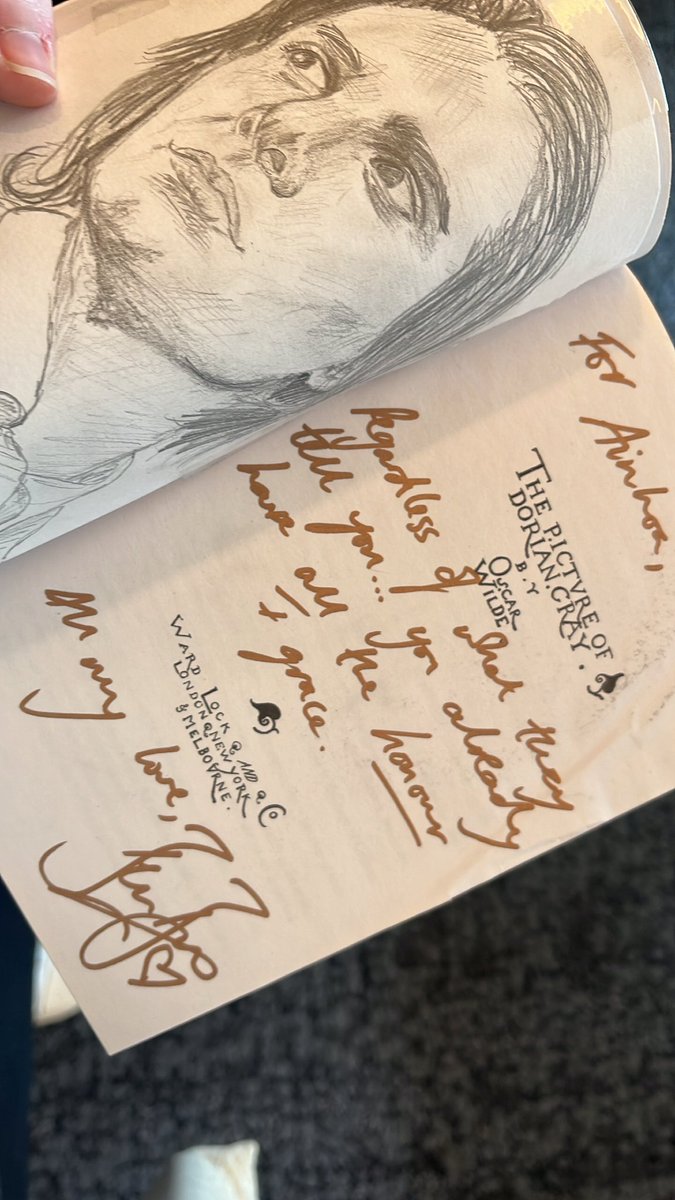 For Ainhoa,
THE PICTVRE OF
DORIAN.GRAY.
B.Y
OSCAR
WILDE
Regardless of what they
tell you... you already
have all the honour
+ grace.
WARD LOCK AND CO
LONDON NEW YORK
& MELBOVRNE.
All my love,